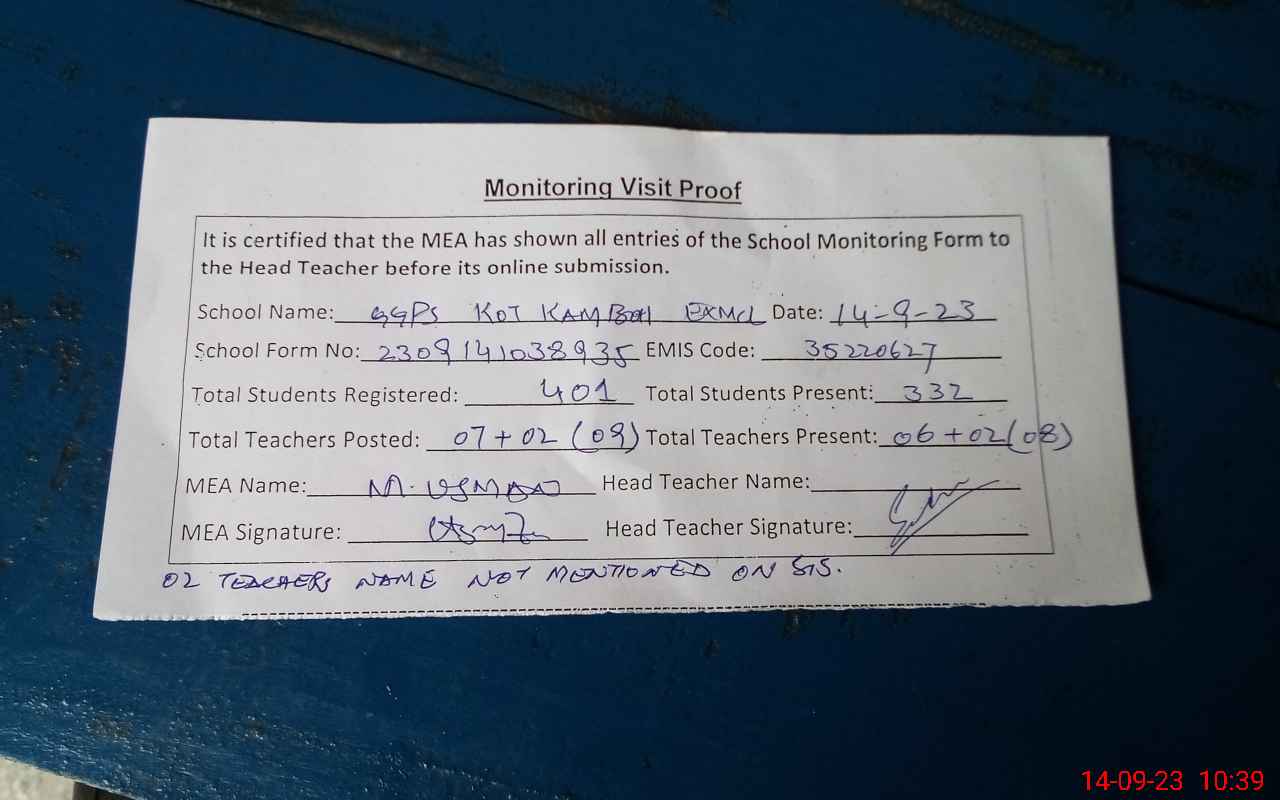 Monitoring Visit Proof
It is certified that the MEA has shown all entries of the School Monitoring Form to
the Head Teacher before its online submission.
School Name: GGPS KOT KAMBOH EXMCL Date: 14-9-23
School Form No: 2309141038935 EMIS Code: 35220627
Total Students Registered: 401 Total Students Present: 332
Total Teachers Posted: 07+02 (09) Total Teachers Present: 06+02(08)
MEA Name: M. USMAN Head Teacher Name:
MEA Signature: Head Teacher Signature:
02 TEACHERS NAME NOT MENTIONED ON SIS.
14-09-23 10:39